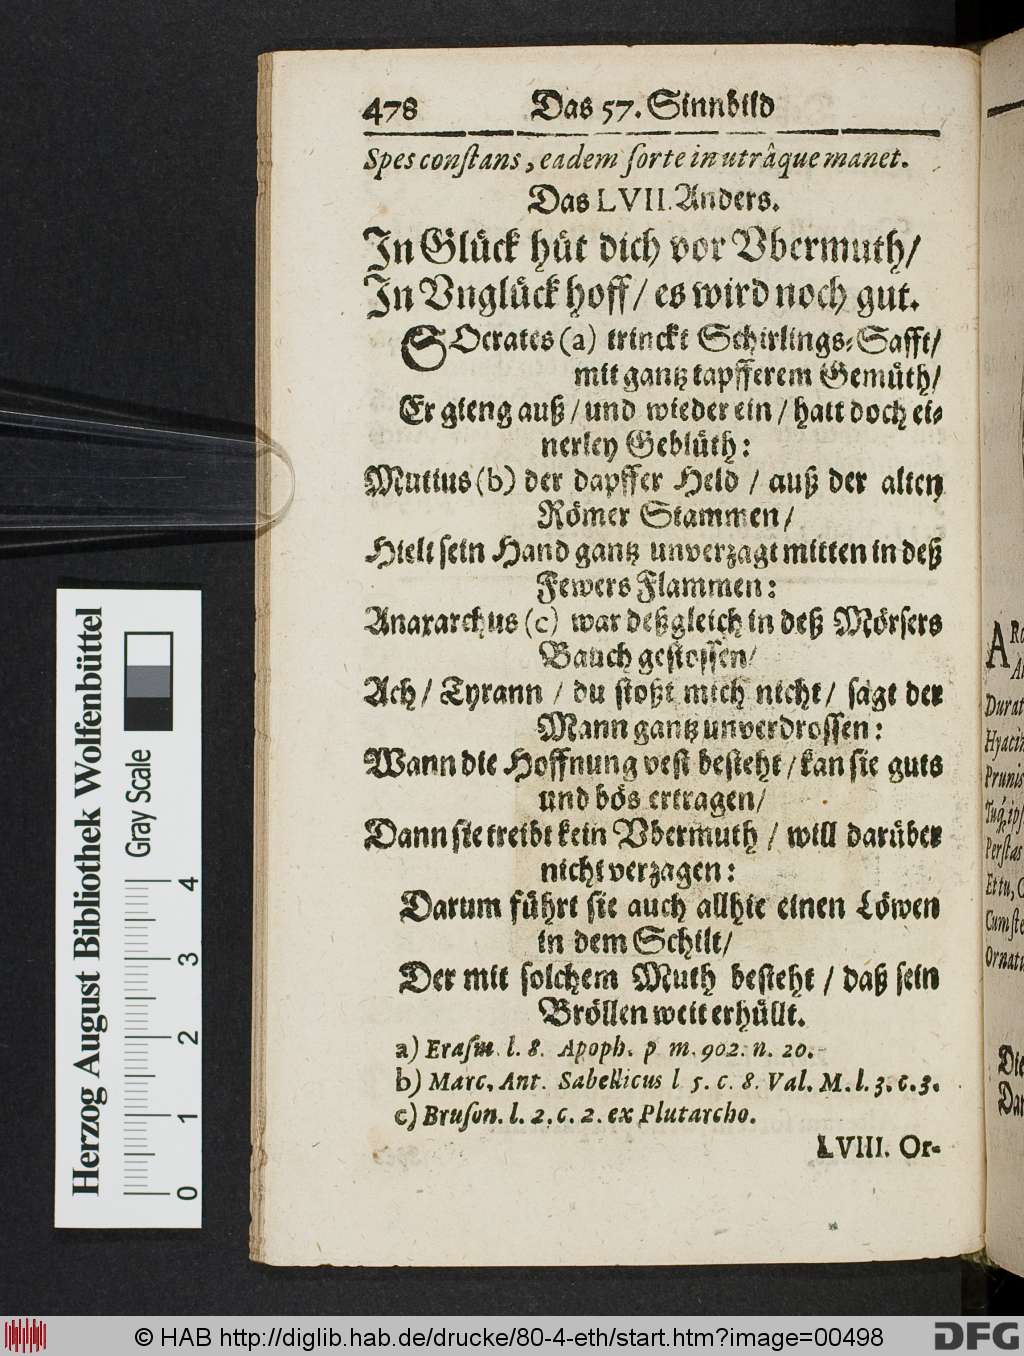 478 Das 57. Sinnbild
Spes conſtans, eadem ſorte in utrâque manet.
Das LVII. Anders.
In Glück hüt dich vor Vbermuth/
In Vnglück hoff/ es wird noch gut.
SOcrates (a) trinckt Schirlings-Safft/
mit gantz tapfferem Gemüth/
Er gieng auß/ und wieder ein/ hatt doch ei-
nerley Geblüth:
Mutius (b) der dapffer Held/ auß der alten
Römer Stammen/
Hielt sein Hand gantz unverzagt mitten in deß
Fewers Flammen:
Anaxarchus (c) war deßgleich in deß Mörsers
Bauch gestossen/
Ach/ Tyrann/ du stoßt mich nicht/ sagt der
Mann gantz unverdrossen:
Wann die Hoffnung vest besteht/ kan sie guts
und bös ertragen/
Dann sie treibt kein Vbermuth/ will darüber
nicht verzagen:
Darum führt sie auch allhie einen Löwen
in dem Schilt/
Der mit solchem Muth besteht/ daß sein
Bröllen weit erhüllt.
a) Eraſm. l. 8. Apoph. p m. 902. n. 20.
b) Marc. Ant. Sabellicus l 5. c. 8. Val. M. l. 3. c. 3.
c) Bruſon. l. 2. c. 2. ex Plutarcho.
LVIII. Or-
Durat
Hyacin
Prunis
Perſtas
Et tu, C
Cum ſte
Ornatu
Die
Dar
Herzog August Bibliothek Wolfenbüttel
Gray Scale
0 1 2 3 4
© HAB http://diglib.hab.de/drucke/80-4-eth/start.htm?image=00498
DFG